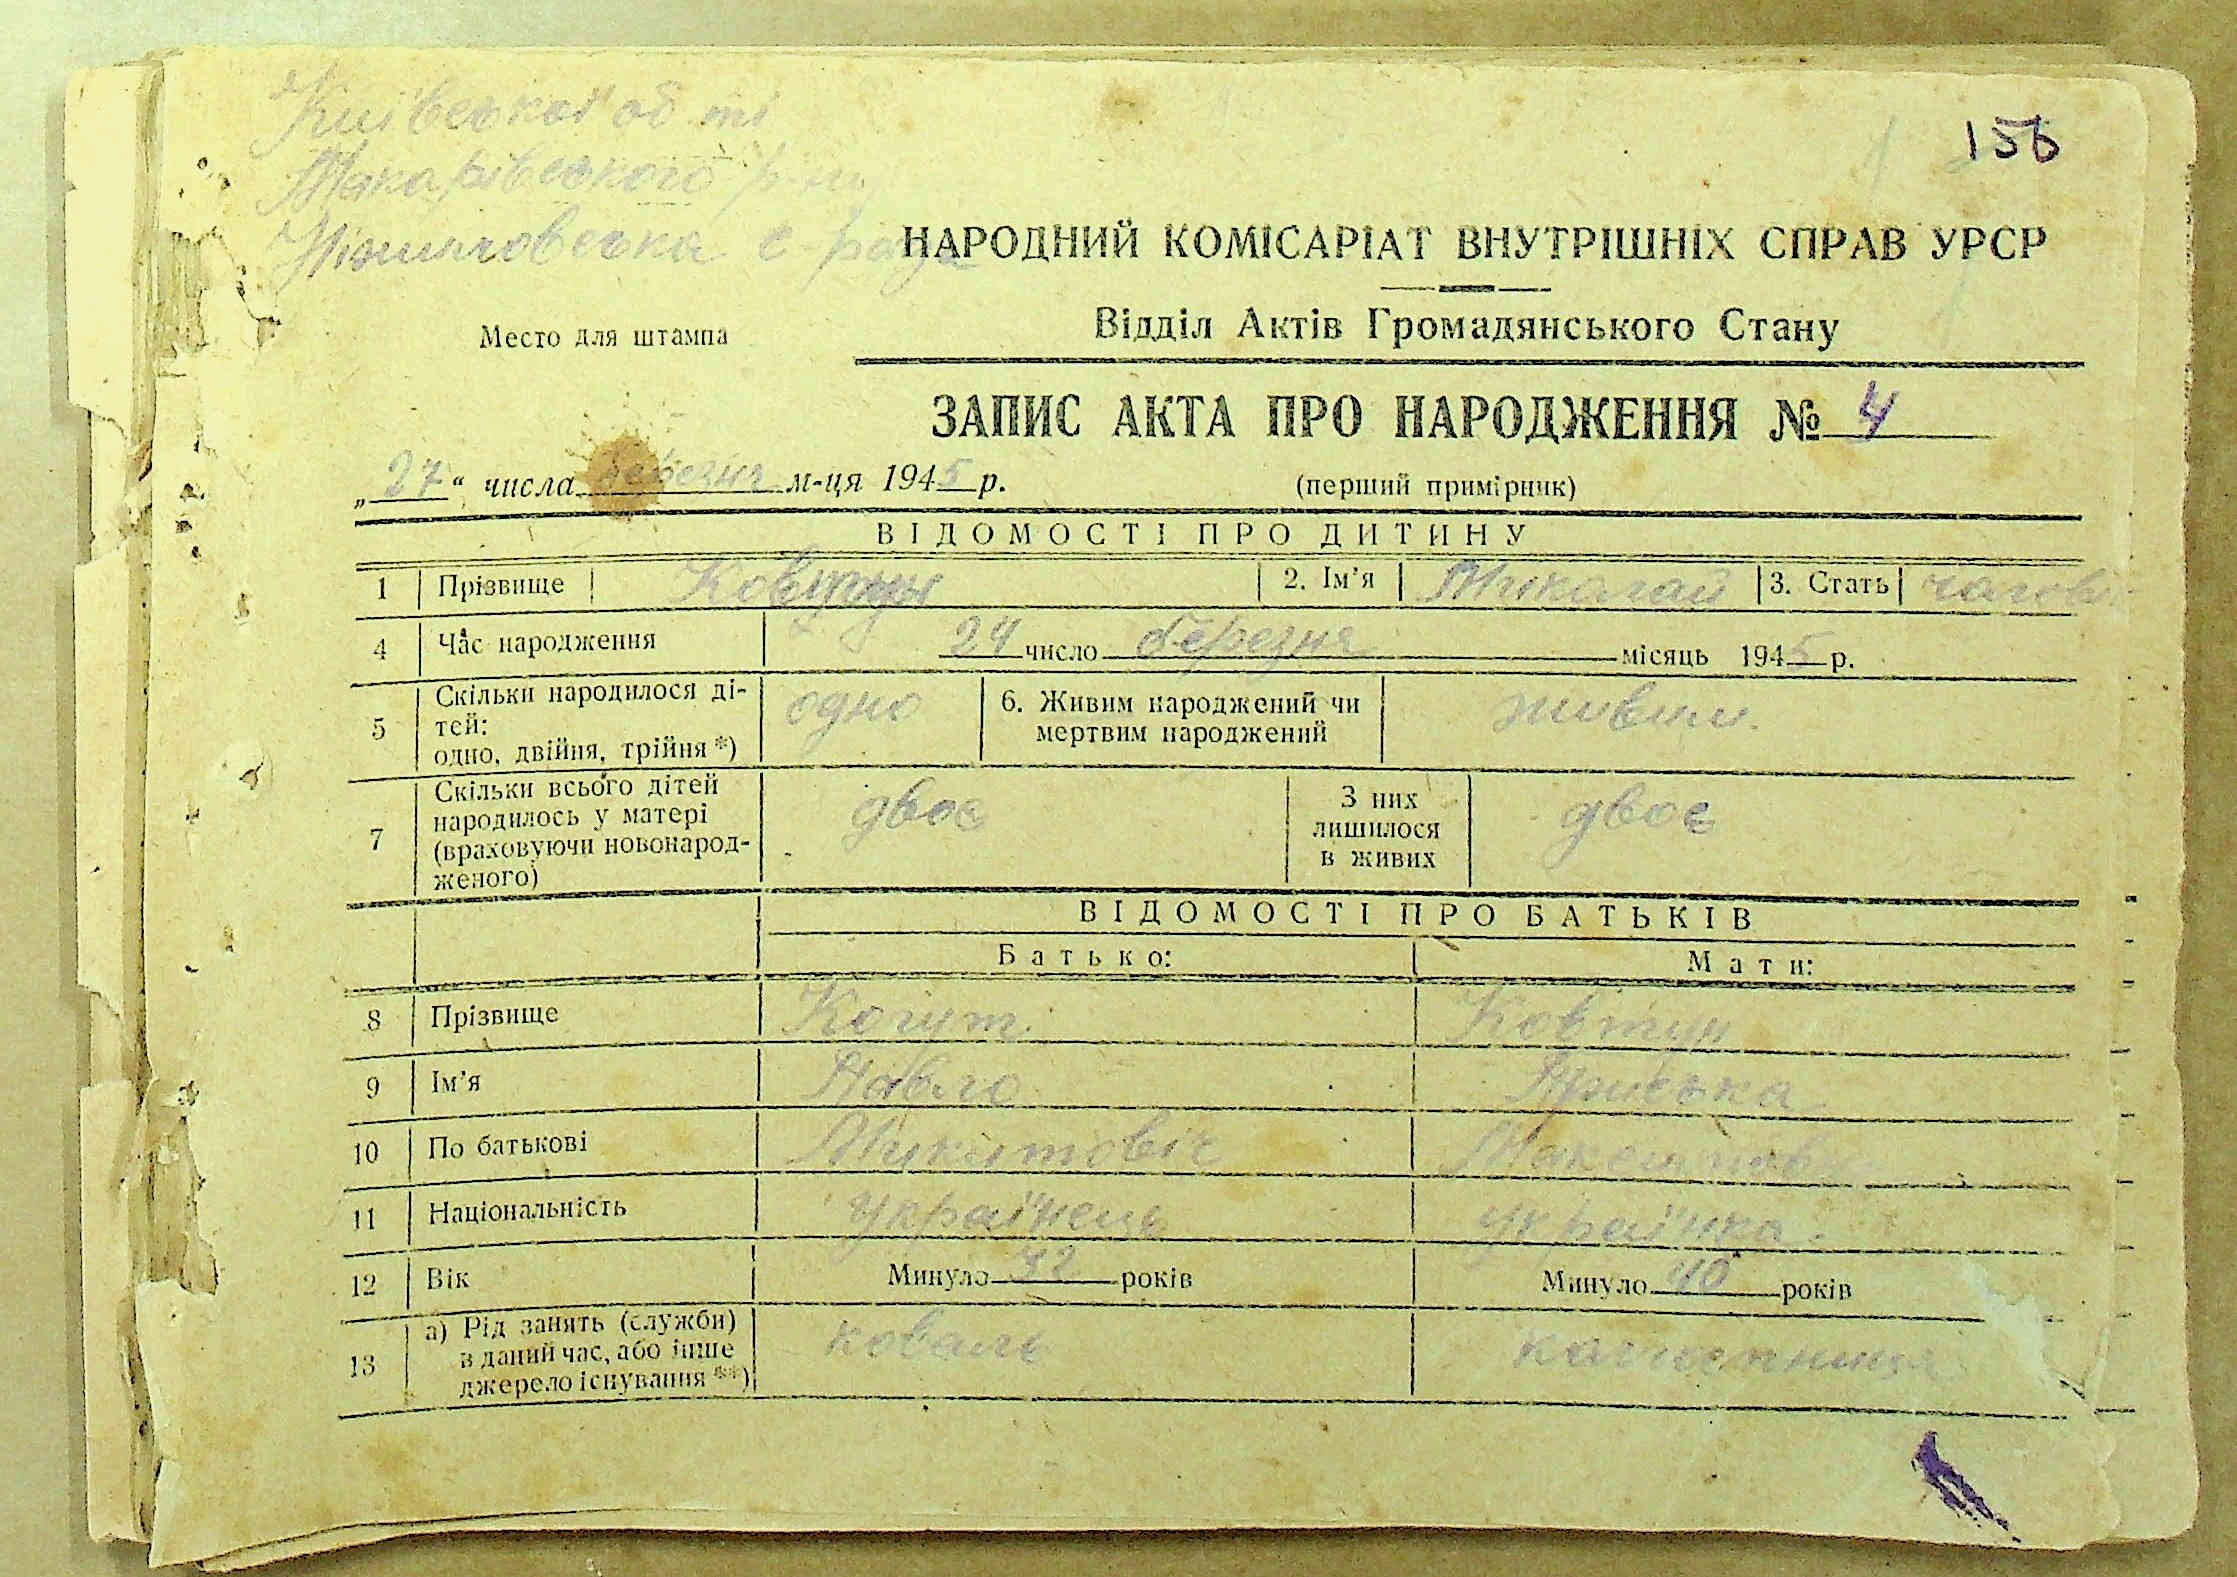 Київської об ті
Макарівського р-ну
с рада
156
НАРОДНИЙ КОМІСАРІАТ ВНУТРІШНІХ СПРАВ УРСР
Место для штампа
Відділ Актів Громадянського Стану
ЗАПИС АКТА ПРО НАРОДЖЕННЯ № 4
„27“ числа березня м-ця 1945 р. (перший примірник)
ВІДОМОСТІ ПРО ДИТИНУ
1 Прізвище Ковтун 2. Ім'я Миколай 3. Стать чолов
4 Час народження 24 число березня місяць 1945 р.
5 Скільки народилося ді-
тей:
одно, двійня, трійня *) одно 6. Живим народжений чи
мертвим народжений живим.
7 Скільки всього дітей
народилось у матері
(враховуючи новонарод-
женого) двоє З них
лишилося
в живих двоє
ВІДОМОСТІ ПРО БАТЬКІВ
Батько: Мати:
8 Прізвище Когут Ковтун
9 Ім'я Павло
10 По батькові Микитовіч
11 Національність українець українка.
12 Вік Минуло 42 років Минуло 40 років
13 а) Рід занять (служби)
в даний час, або інше
джерело існування **) коваль колгоспниця